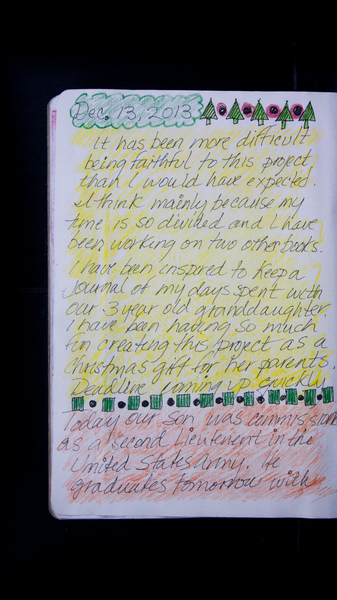 Dec. 13, 2013
It has been more difficult
being faithful to this project
than I would have expected.
I think mainly because my
time is so divided and I have
been working on two other books.
I have been inspired to keep a
journal of my days spent with
our 3 year old granddaughter.
I have been having so much
fun creating this project as a
Christmas gift for her parents.
Deadline coming up quickly
Today our son was commission
as a second Lieutenent in the
United States Army. He
graduates tomorrow with